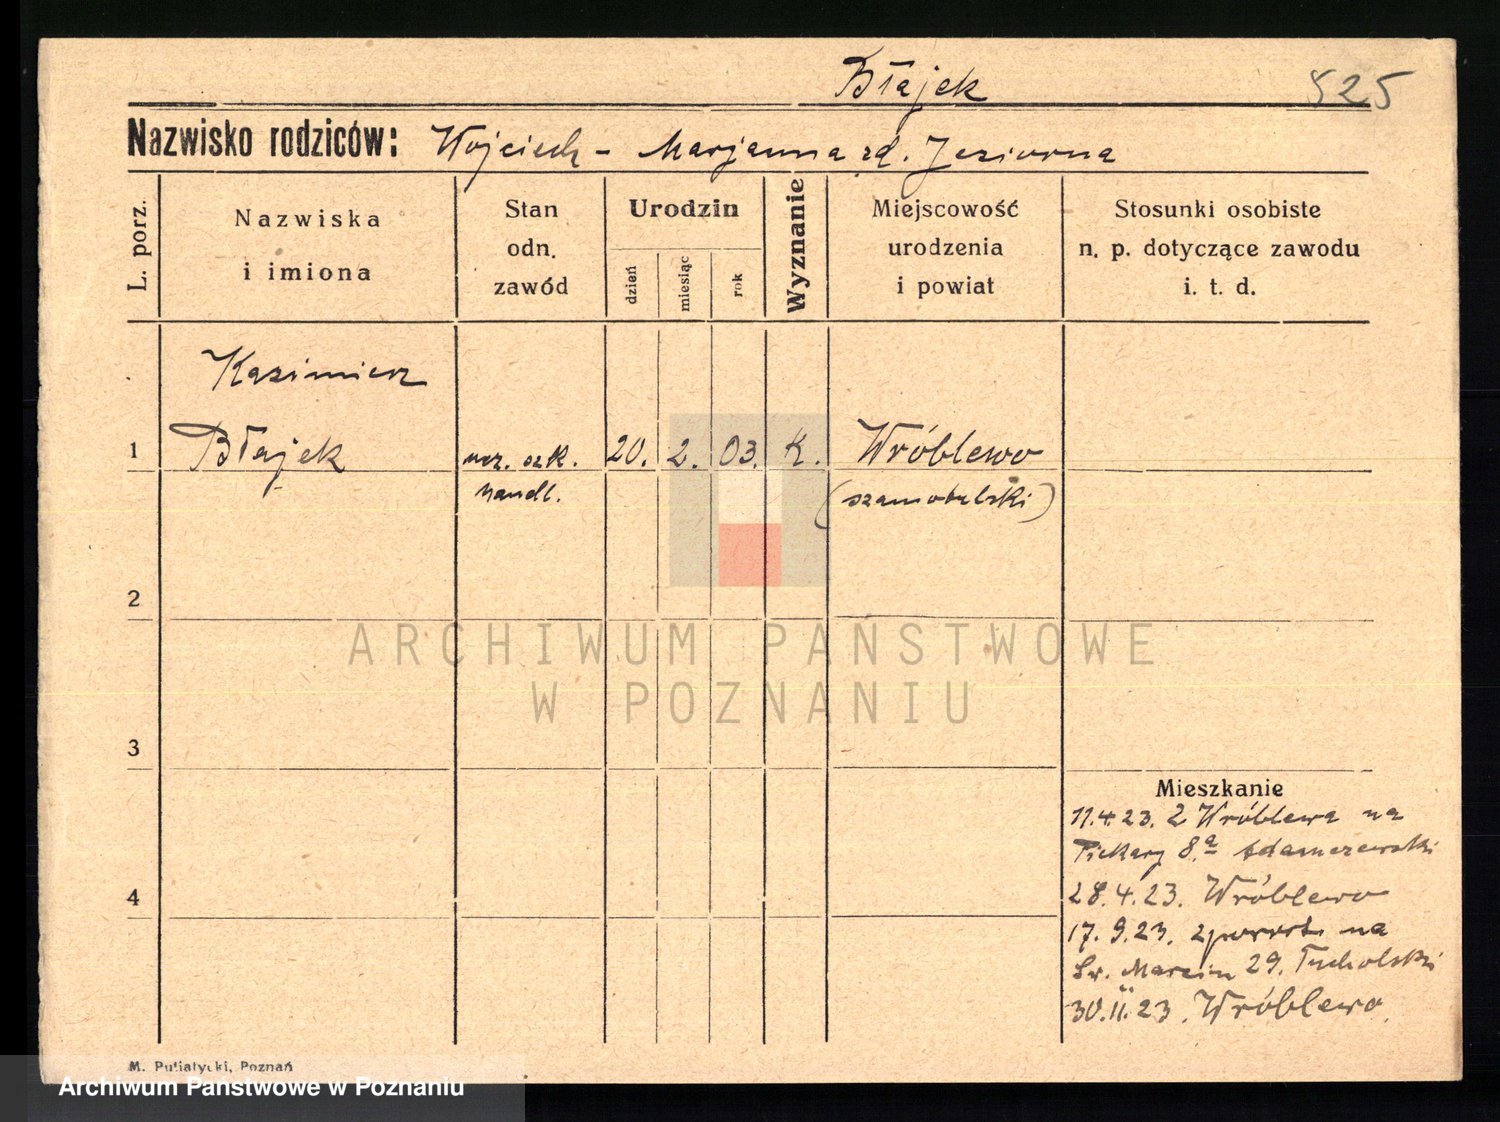 Błajek 525
Nazwisko rodziców: Wojciech - Marjanna zd. Jeziorna
L. porz.
Nazwiska
i imiona
Stan
odn.
zawód
Urodzin
dzień
miesiąc
rok
Wyznanie
Miejscowość
urodzenia
i powiat
Stosunki osobiste
n. p. dotyczące zawodu
i. t. d.
Kazimierz
1 Błajek ucz. szk. 20. 2. 03. K. Wróblewo
handl. (szamotulski)
2
ARCHIWUM PAŃSTWOWE
W POZNANIU
3
Mieszkanie
11.4.23. Z Wróblewa na
Piekary 8.a Adamczewski
4
28.4.23. Wróblewo
17.9.23. zpowrot na
Św. Marcin 29. Tucholski
30.11.23. Wróblewo.
M. Putiatycki, Poznań
Archiwum Państwowe w Poznaniu